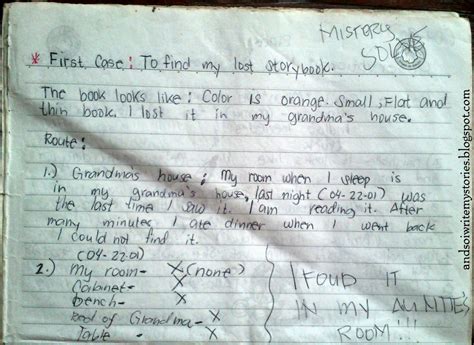 MISTERY
SOLVE
* First Case: To find my lost storybook.
The book looks like: Color is orange. Small, Flat and
thin book. I lost it in my grandma's house.
Route:
1.) Grandma's house: My room when I sleep is
in my grandma's house, last night (04-22-01) was
the last time I saw it. I am reading it. After
many minutes, I ate dinner when I went back
I could not find it.
(04-22-01)
2.) My room- X (none)
Cabanet- X
bench- X
bed of Grandma- X
Table- X
I FOUD IT
IN MY AUNTIES
ROOM!!!
andsoiwritemystories.blogspot.com